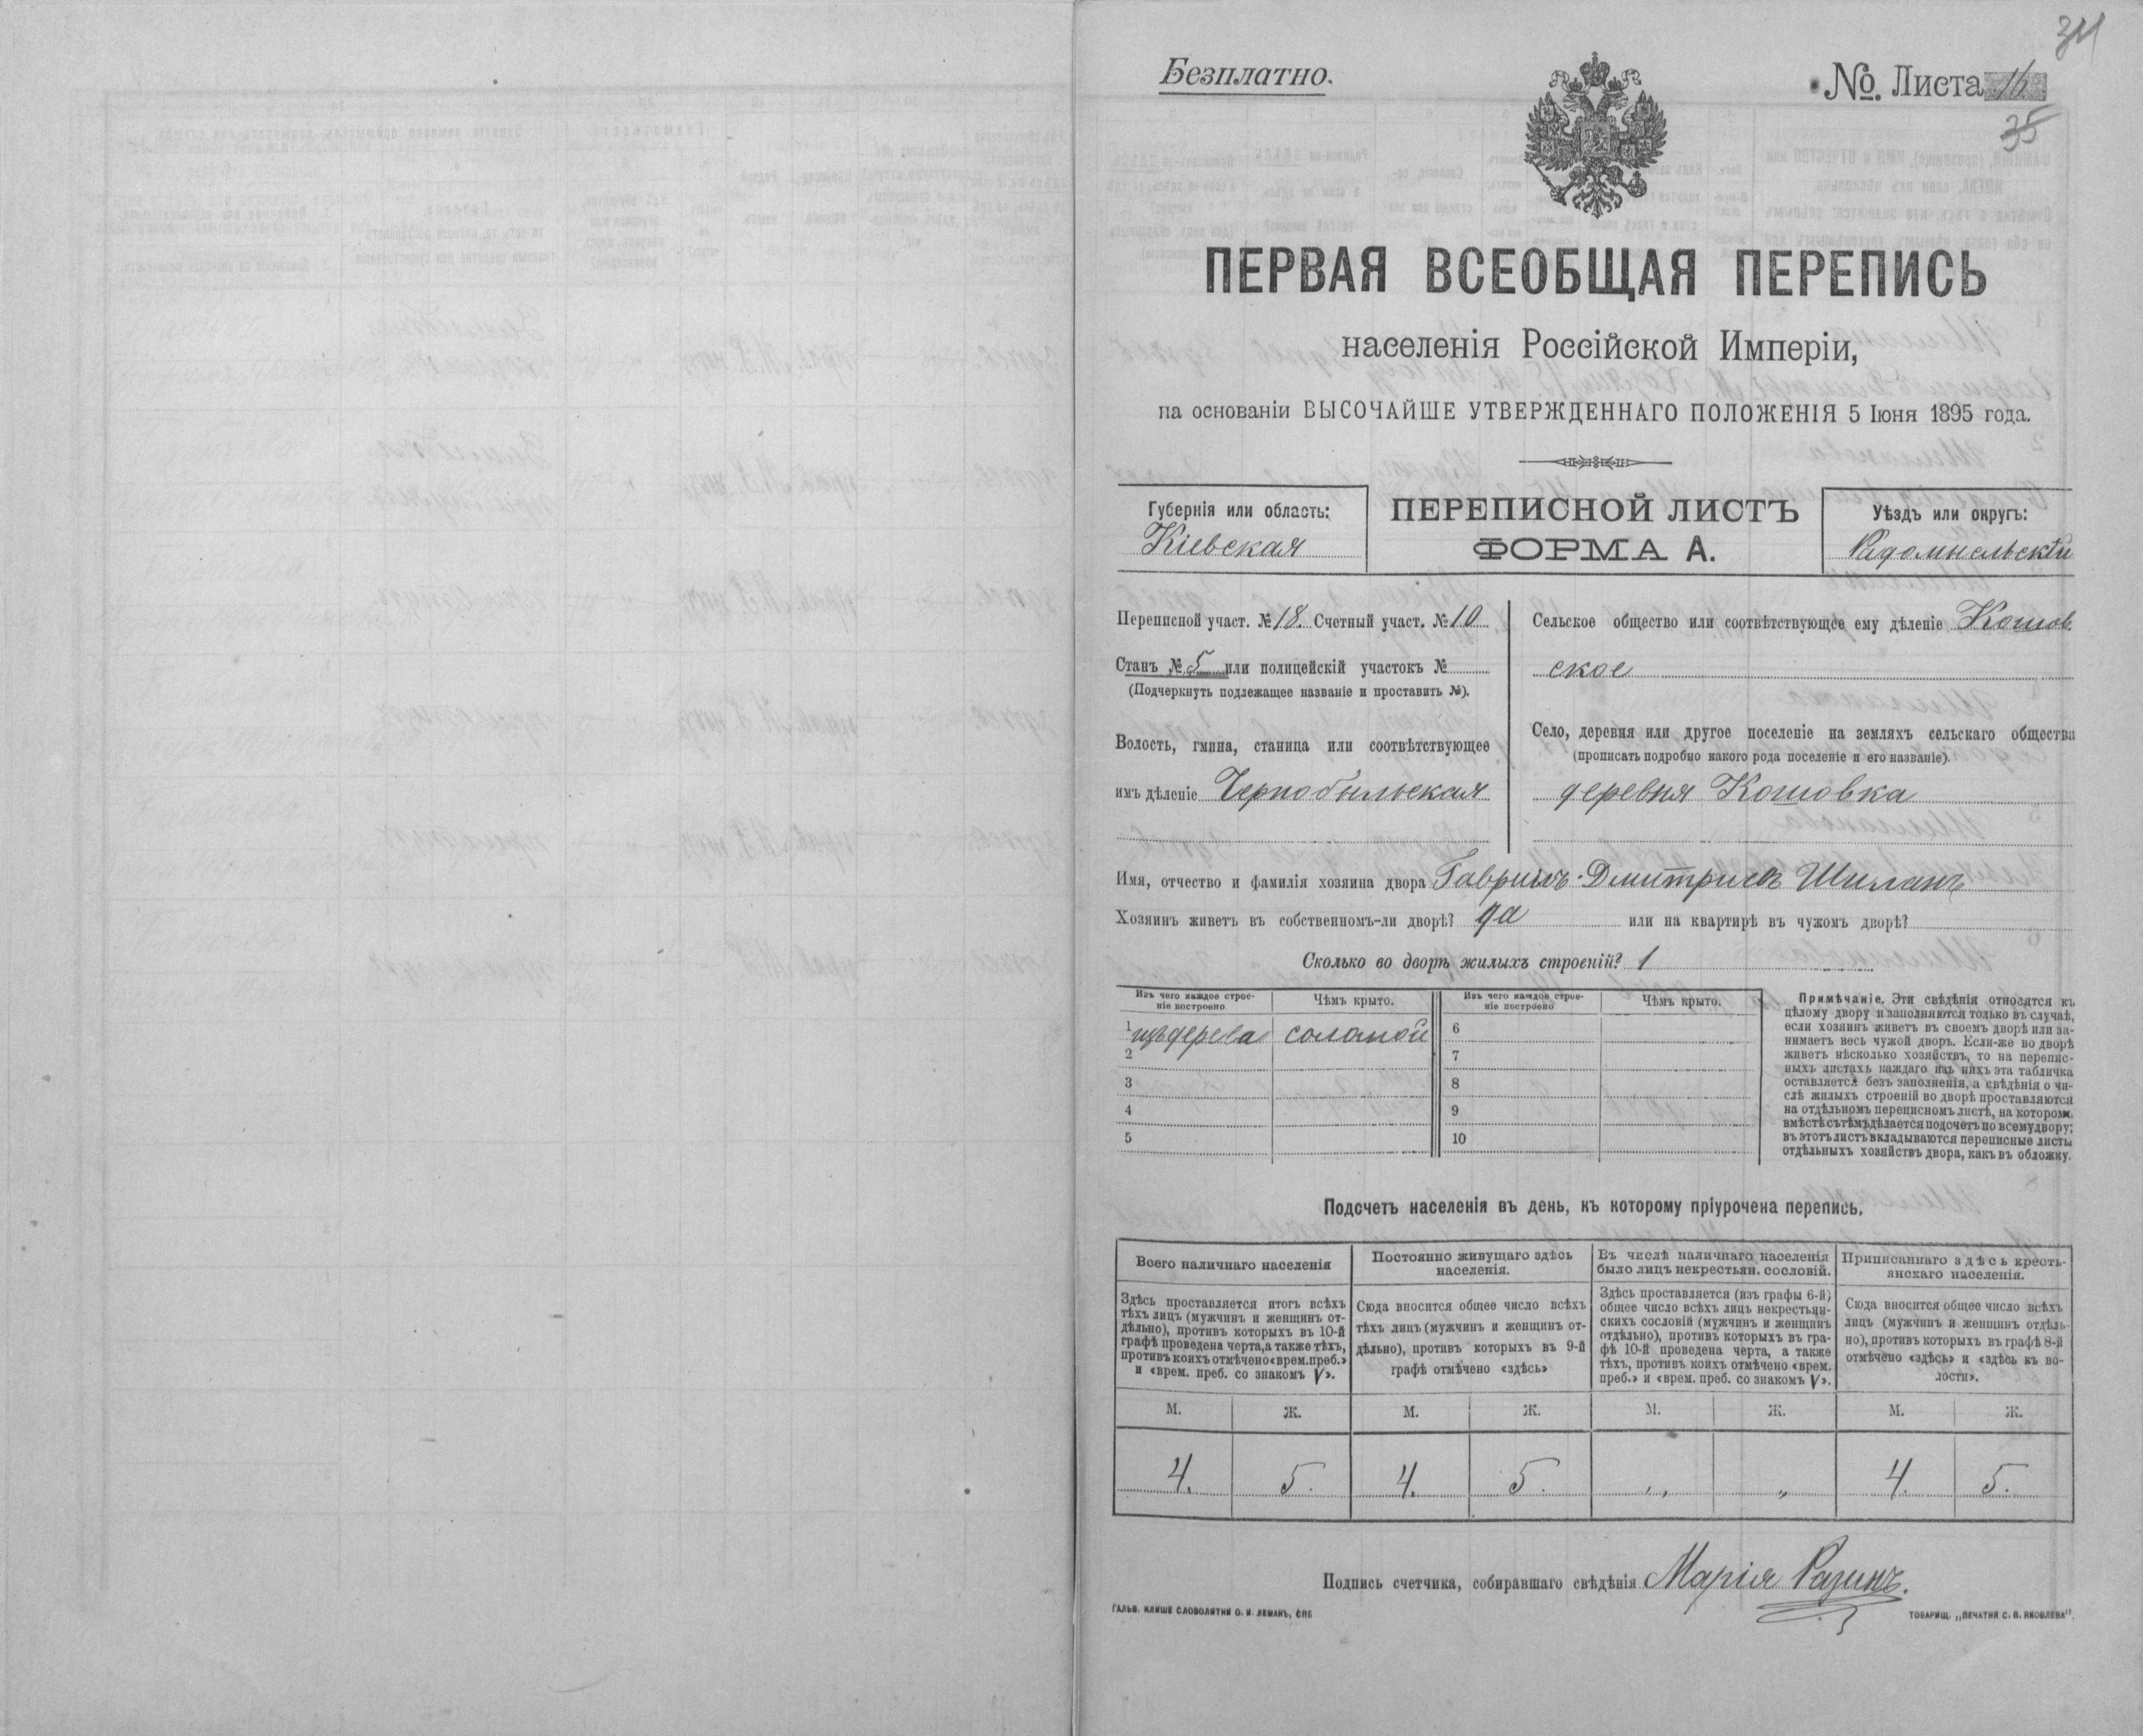 34
Безплатно.
№. Листа 16
35
ПЕРВАЯ ВСЕОБЩАЯ ПЕРЕПИСЬ
населенія Россійской Имперіи,
на основаніи ВЫСОЧАЙШЕ УТВЕРЖДЕННАГО ПОЛОЖЕНІЯ 5 Іюня 1895 года.
Губернія или область:
Кіевская
ПЕРЕПИСНОЙ ЛИСТЪ
ФОРМА А.
Уѣздъ или округъ:
Радомысльскій
Переписной участ. № 18. Счетный участ. № 10
Станъ № 5 или полицейскій участокъ №
(Подчеркнуть подлежащее названіе и проставить №).
Волость, гмина, станица или соотвѣтствующее
имъ дѣленіе Чернобыльская
Сельское общество или соотвѣтствующее ему дѣленіе Кошов
ское
Село, деревня или другое поселеніе на земляхъ сельскаго общества
(прописать подробно какого рода поселеніе и его названіе).
деревня Кошовка
Имя, отчество и фамилія хозяина двора Гаврилъ Дмитріевъ Шиланъ
Хозяинъ живетъ въ собственномъ-ли дворѣ? да или на квартирѣ въ чужомъ дворѣ?
Сколько во дворѣ жилыхъ строеній? 1
Изъ чего каждое строе-
ніе построено
Чѣмъ крыто.
Изъ чего каждое строе-
ніе построено
Чѣмъ крыто.
1 изъ дерева соломой 6
2 7
3 8
4 9
5 10
Примѣчаніе. Эти свѣдѣнія относятся къ
цѣлому двору и заполняются только въ случаѣ,
если хозяинъ живетъ въ своемъ дворѣ или за-
нимаетъ весь чужой дворъ. Если-же во дворѣ
живетъ нѣсколько хозяйствъ, то на перепис-
ныхъ листахъ каждаго изъ нихъ эта табличка
оставляется безъ заполненія, а свѣдѣнія о чи-
слѣ жилыхъ строеній во дворѣ проставляются
на отдѣльномъ переписномъ листѣ, на которомъ
вмѣстѣ съ тѣмъ дѣлается подсчетъ по всему двору;
въ этотъ листъ вкладываются переписные листы
отдѣльныхъ хозяйствъ двора, какъ въ обложку.
Подсчетъ населенія въ день, къ которому пріурочена перепись.
Всего наличнаго населенія
Здѣсь проставляется итогъ всѣхъ
тѣхъ лицъ (мужчинъ и женщинъ от-
дѣльно), противъ которыхъ въ 10-й
графѣ проведена черта, а также тѣхъ,
противъ коихъ отмѣчено «врем. преб.»
и «врем. преб. со знакомъ V».
Постоянно живущаго здѣсь
населенія.
Сюда вносится общее число всѣхъ
тѣхъ лицъ (мужчинъ и женщинъ от-
дѣльно), противъ которыхъ въ 9-й
графѣ отмѣчено «здѣсь»
Въ числѣ наличнаго населенія
было лицъ некрестьян. сословій.
Здѣсь проставляется (изъ графы 6-й)
общее число всѣхъ лицъ некрестьян-
скихъ сословій (мужчинъ и женщинъ
отдѣльно), противъ которыхъ въ гра-
фѣ 10-й проведена черта, а также
тѣхъ, противъ коихъ отмѣчено «врем.
преб.» и «врем. преб. со знакомъ V».
Приписаннаго здѣсь кресть-
янскаго населенія.
Сюда вносится общее число всѣхъ
лицъ (мужчинъ и женщинъ отдѣль-
но), противъ которыхъ въ графѣ 8-й
отмѣчено «здѣсь» и «здѣсь къ во-
лости».
М. Ж. М. Ж. М. Ж. М. Ж.
4. 5. 4. 5. „ „ 4. 5.
Подпись счетчика, собиравшаго свѣдѣнія Марія Разинъ.
ГАЛЬВ. КЛИШЕ СЛОВОЛИТНИ О. И. ЛЕМАНЪ, СПБ
ТОВАРИЩ. „ПЕЧАТНЯ С. П. ЯКОВЛЕВА".